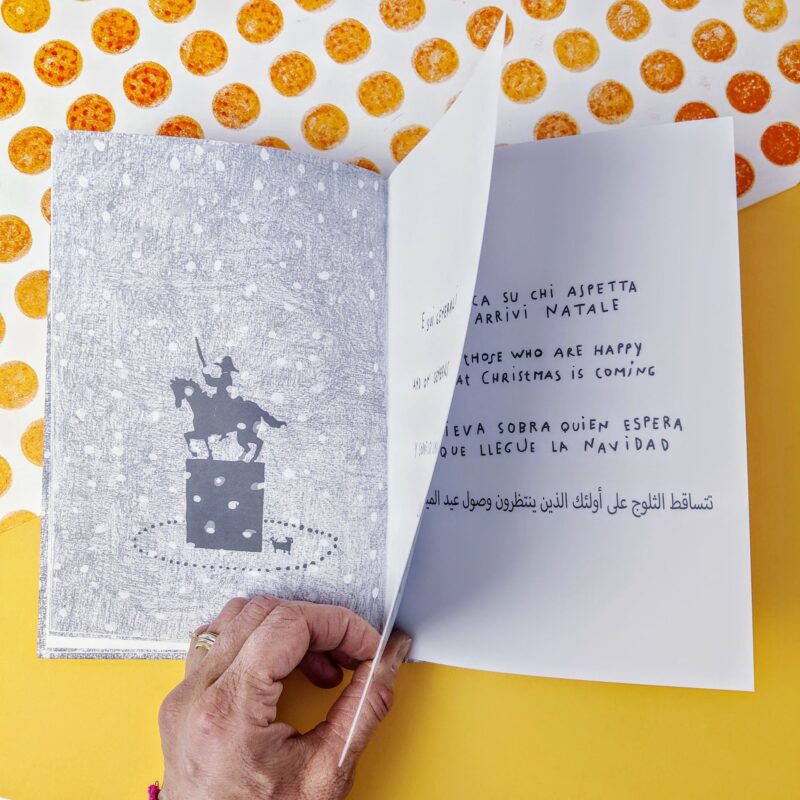 E SUI GENERALI
AND ON GENERALS
CA SU CHI ASPETTA
ARRIVI NATALE
THOSE WHO ARE HAPPY
AT CHRISTMAS IS COMING
IEVA SOBRA QUIEN ESPERA
QUE LLEGUE LA NAVIDAD
تتساقط الثلوج على أولئك الذين ينتظرون وصول عيد المي